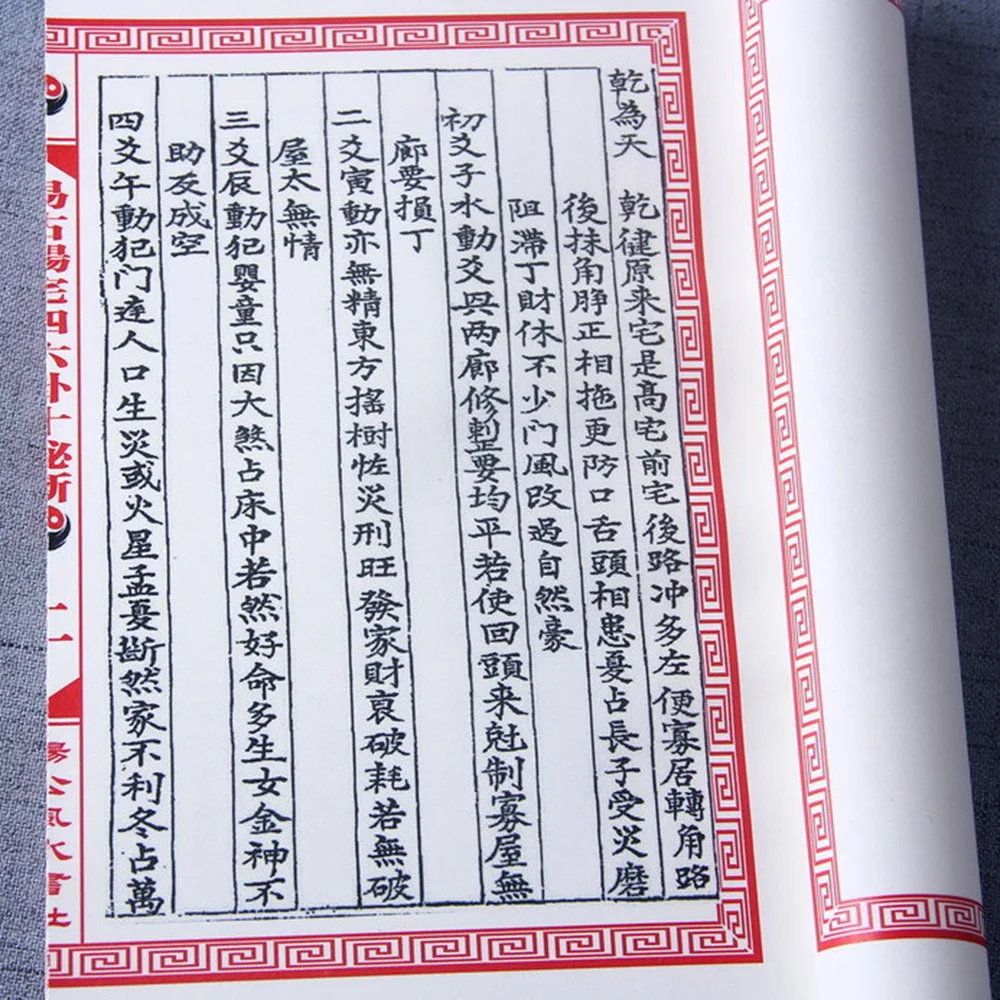 乾為天　乾健原来宅是高宅前宅後路冲多左便寡居轉角路
後抹角脖正相拖更防口舌頭相患憂占長子受災磨
阻滯丁財休不少门風改過自然豪
初爻子水動爻與两廊修整要均平若使回頭来尅制寡屋無
廊要損丁
二爻寅動亦無精東方搖樹恠災刑旺發家財哀破耗若無破
屋太無情
三爻辰動犯嬰童只因大煞占床中若然好命多生女金神不
助反成空
四爻午動犯门庭人口生災或火星孟憂斷然家不利冬占萬